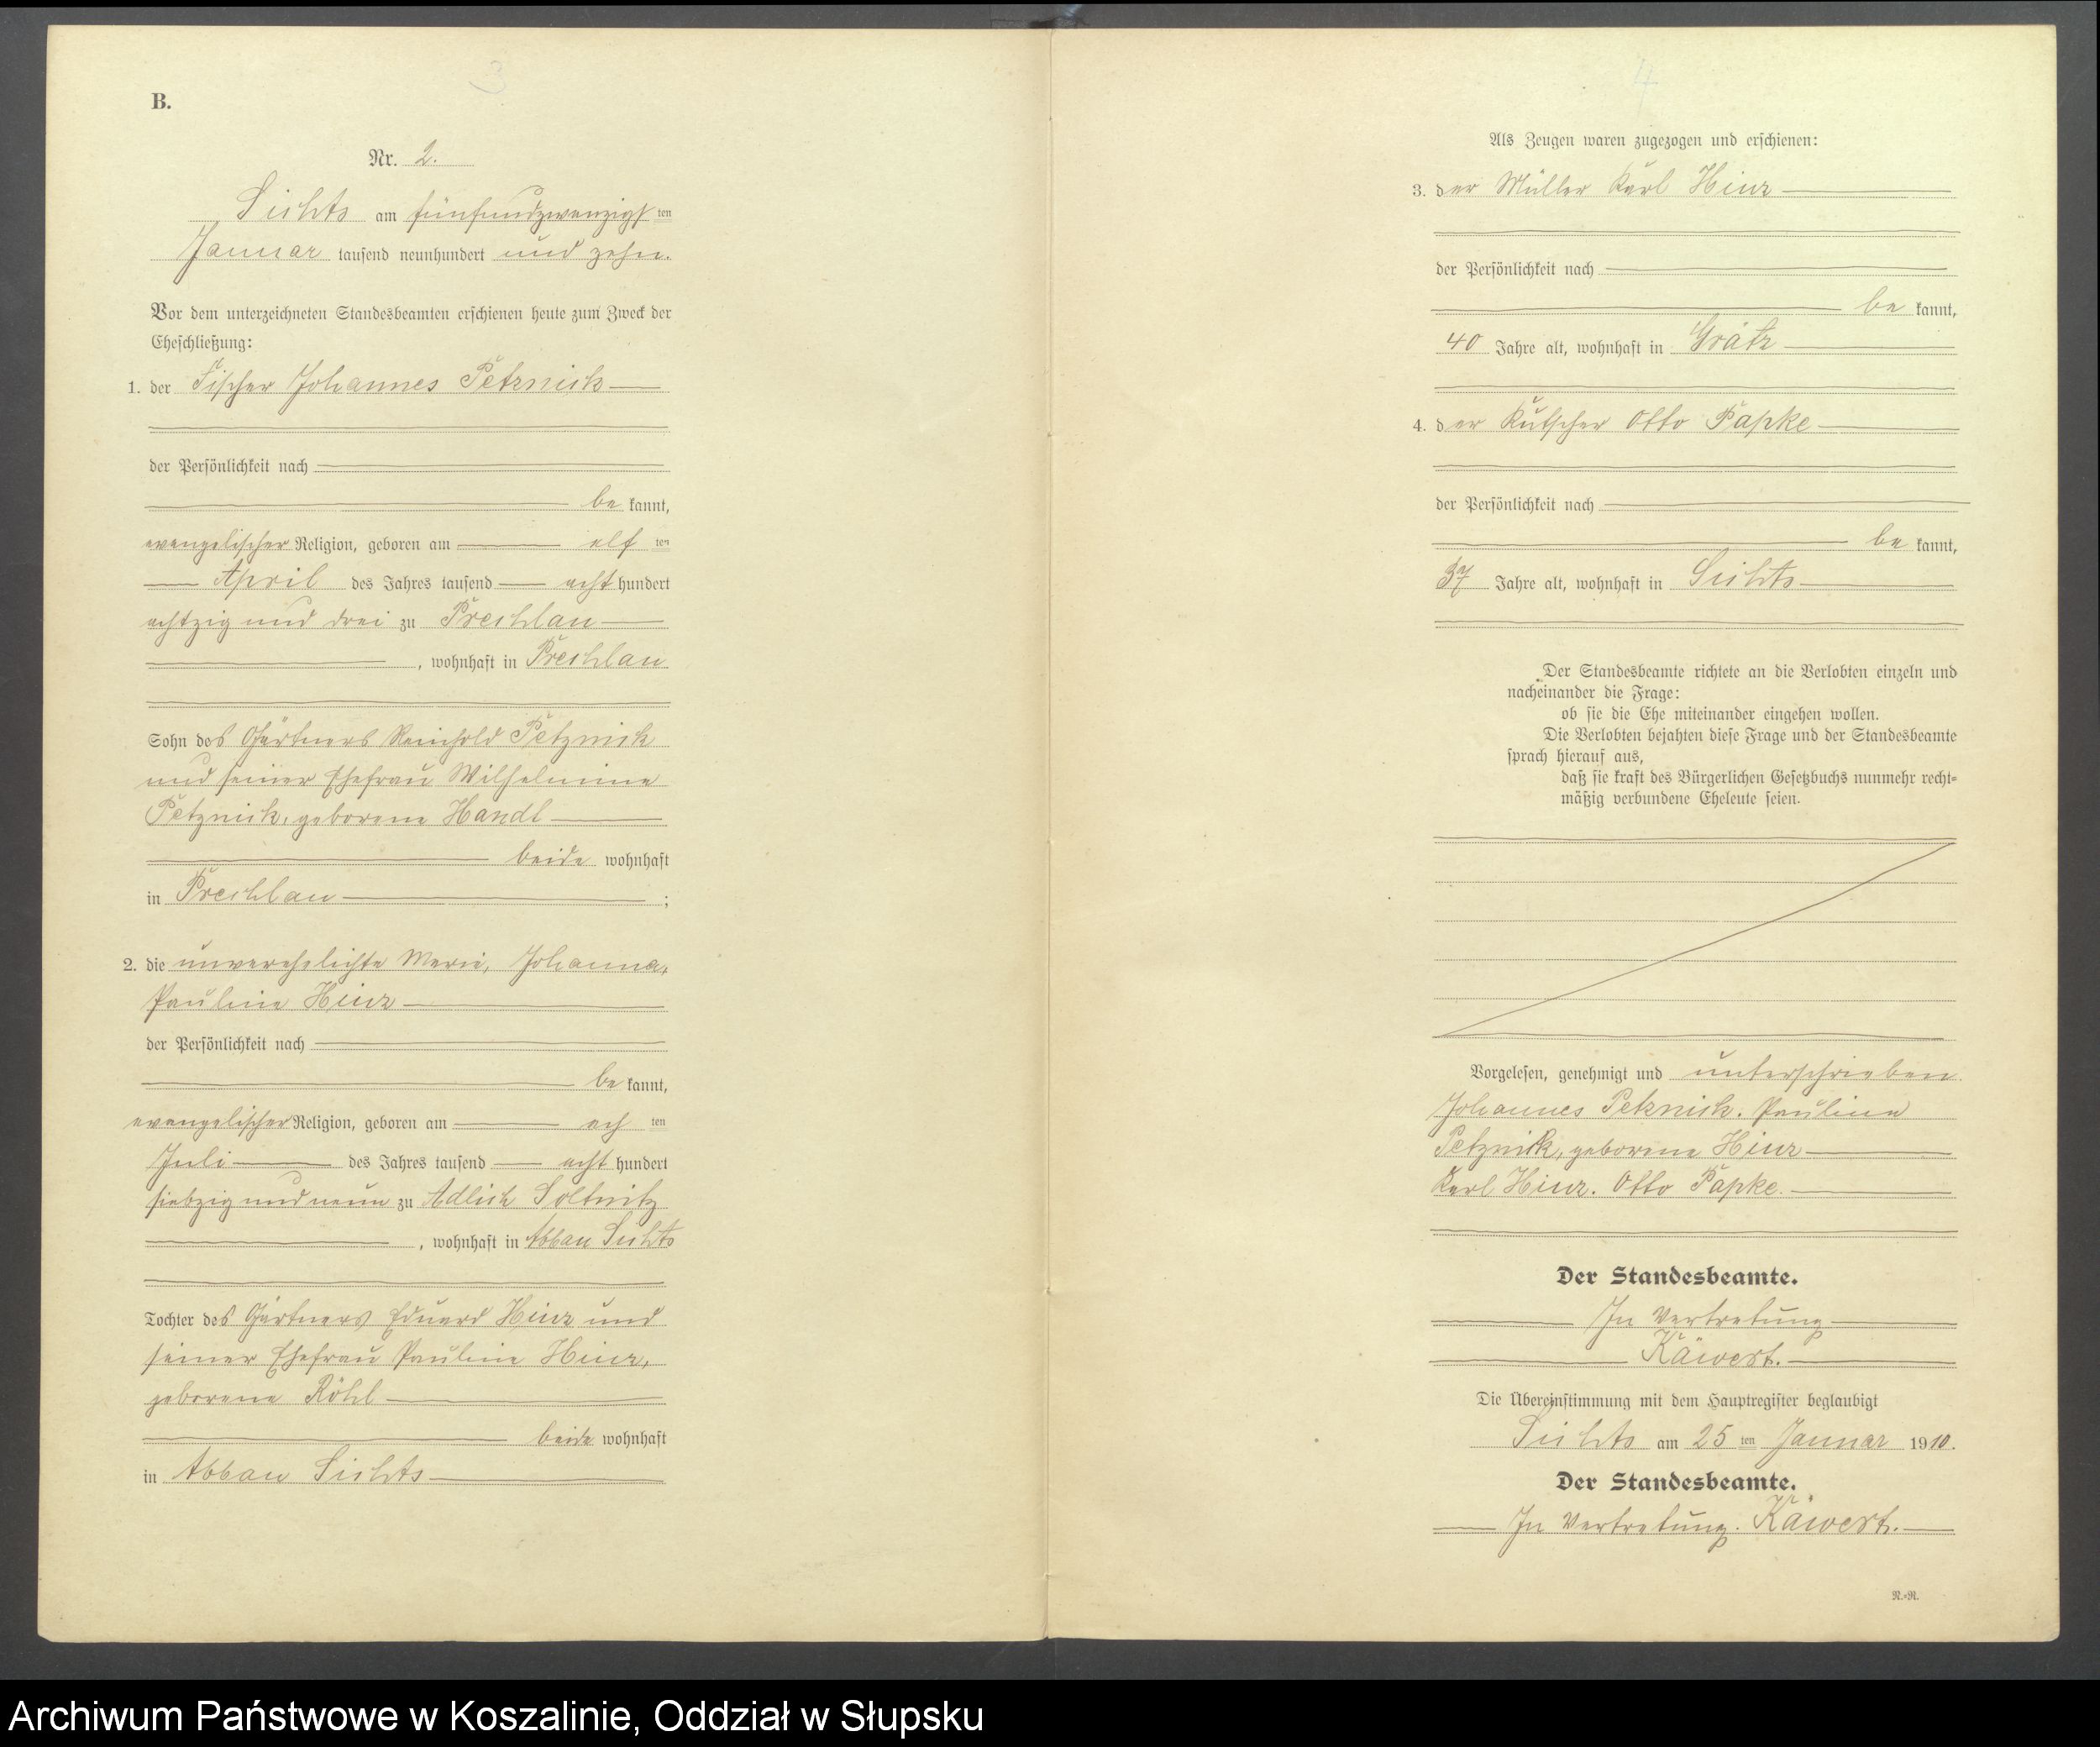 3
B.
Nr. 2.
Sichts am fünfundzwanzigsten
Januar tausend neunhundert und zehn.
Vor dem unterzeichneten Standesbeamten erschienen heute zum Zweck der
Eheschließung:
1. der Fischer Johannes Petznick
der Persönlichkeit nach
be kannt,
evangelischer Religion, geboren am elf ten
April des Jahres tausend acht hundert
achtzig und drei zu Prechlau
, wohnhaft in Prechlau
Sohn des Gärtners Reinhold Petznick
und seiner Ehefrau Wilhelmine
Petznick, geborene Handt
beide wohnhaft
in Prechlau ;
2. die unverehelichte Marie, Johanna,
Pauline Hinz
der Persönlichkeit nach
be kannt,
evangelischer Religion, geboren am ach ten
Juli des Jahres tausend acht hundert
siebzig und neun zu Adlich Soltnitz
, wohnhaft in Abbau Sichts
Tochter des Gärtners Eduard Hinz und
seiner Ehefrau Pauline Hinz,
geborene Röhl
beide wohnhaft
in Abbau Sichts
4
Als Zeugen waren zugezogen und erschienen:
3. der Müller Karl Hinz
der Persönlichkeit nach
be kannt,
40 Jahre alt, wohnhaft in Grätz
4. der Kutscher Otto Papke
der Persönlichkeit nach
be kannt,
37 Jahre alt, wohnhaft in Sichts
Der Standesbeamte richtete an die Verlobten einzeln und
nacheinander die Frage:
ob sie die Ehe miteinander eingehen wollen.
Die Verlobten bejahten diese Frage und der Standesbeamte
sprach hierauf aus,
daß sie kraft des Bürgerlichen Gesetzbuchs nunmehr recht-
mäßig verbundene Eheleute seien.
Vorgelesen, genehmigt und unterschrieben.
Johannes Petznick. Pauline
Petznick, geborene Hinz
Karl Hinz. Otto Papke.
Der Standesbeamte.
In Vertretung
Käwert.
Die Übereinstimmung mit dem Hauptregister beglaubigt
Sichts am 25 ten Januar 1910.
Der Standesbeamte.
In Vertretung. Käwert.
R.-R.
Archiwum Państwowe w Koszalinie, Oddział w Słupsku